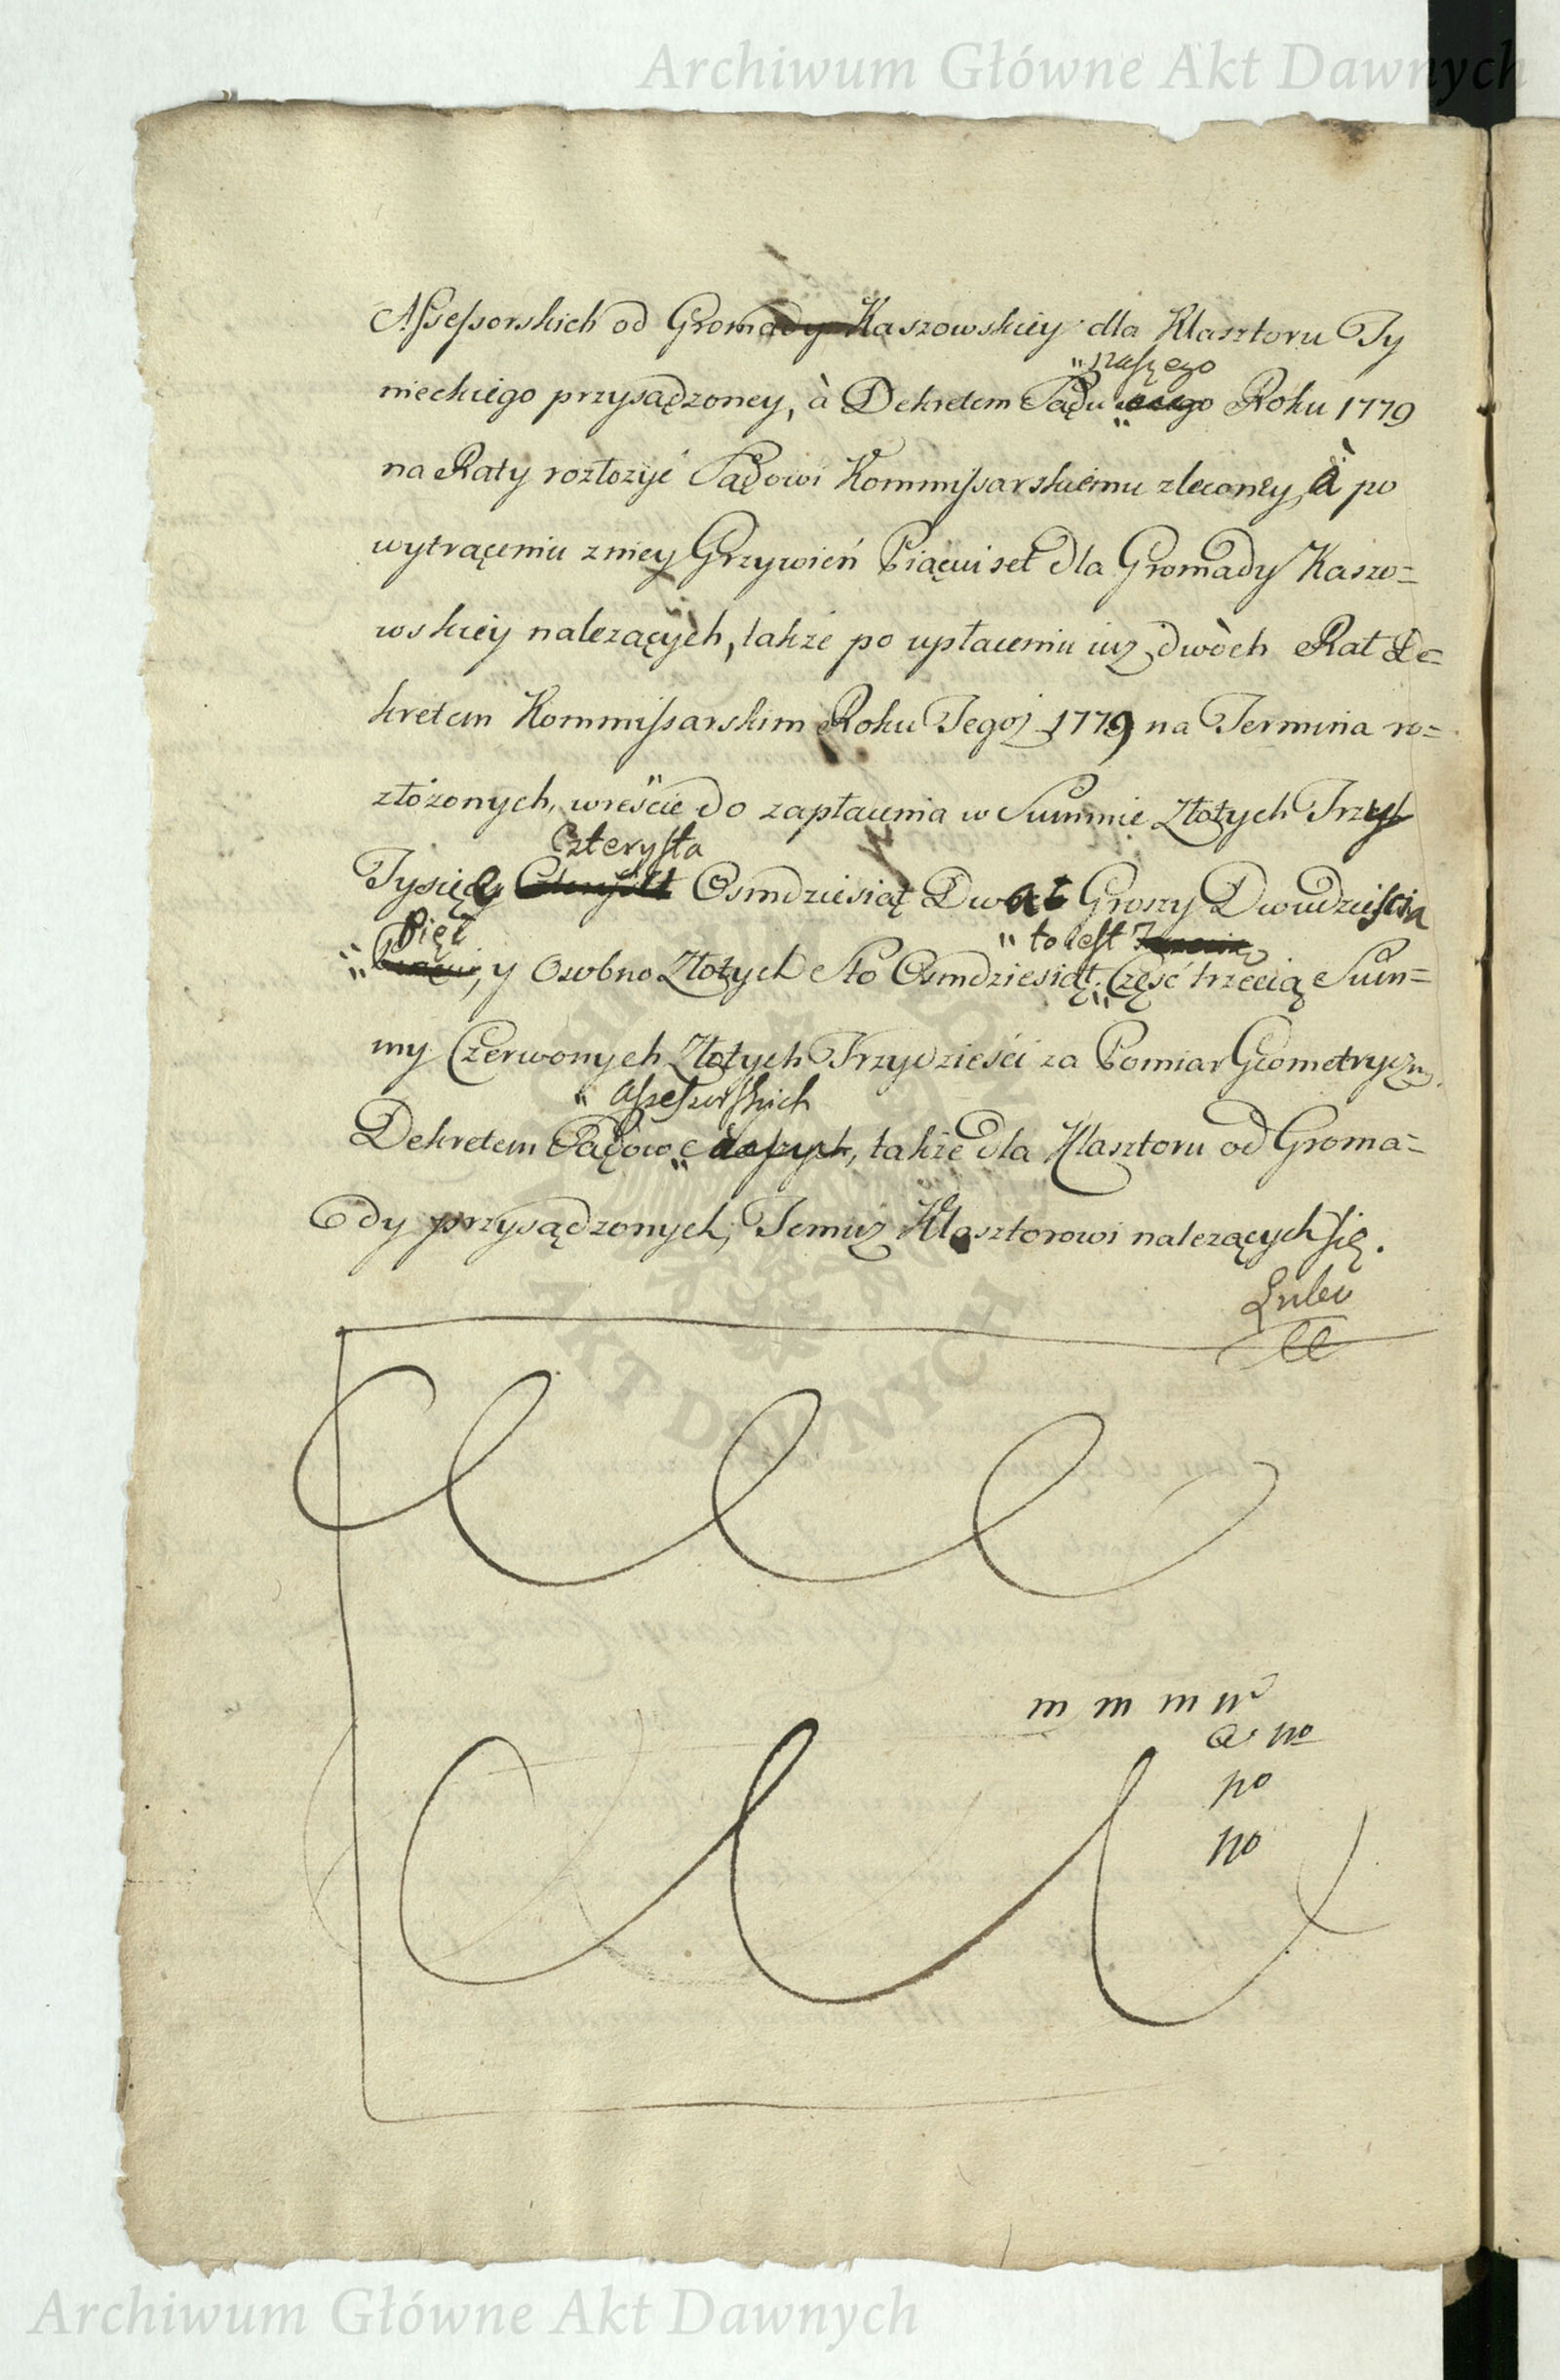 Archiwum Główne Akt Dawnych
Assessorskich od Gromady Kaszowskiey dla Klasztoru Ty
"naszego
nieckiego przysądzoney, à Dekretem Sądu Roku 1779
na Raty rozłozyć Sądowi Kommissarskiemu zleconey, à po
wytrąceniu zniey Grzywień Piąciuset dla Gromady Kaszo=
wskiey nalezących, takze po upłaceniu iuz dwòch Rat De=
kretem Kommissarskim Roku Tegoz 1779 na Termina ro=
złożonych, wreście do zapłacenia w Summie Złotych Trzy
Czterysta
Tysięcy Osmdziesiąt Dwa Groszy Dwudzieścia
Pięć " to iest
y Osobno Złotych Sto Osmdziesiąt Część trzecią Sum=
my Czerwonych Złotych Trzydzieści za Pomiar Geometryczny
" Assessorskich
Dekretem Sądow naszych, takze dla Klasztoru od Groma=
dy przysądzonych, Temuz Klasztorowi nalezących się.
m m m
no
no
AKT DAWNYCH
Archiwum Główne Akt Dawnych